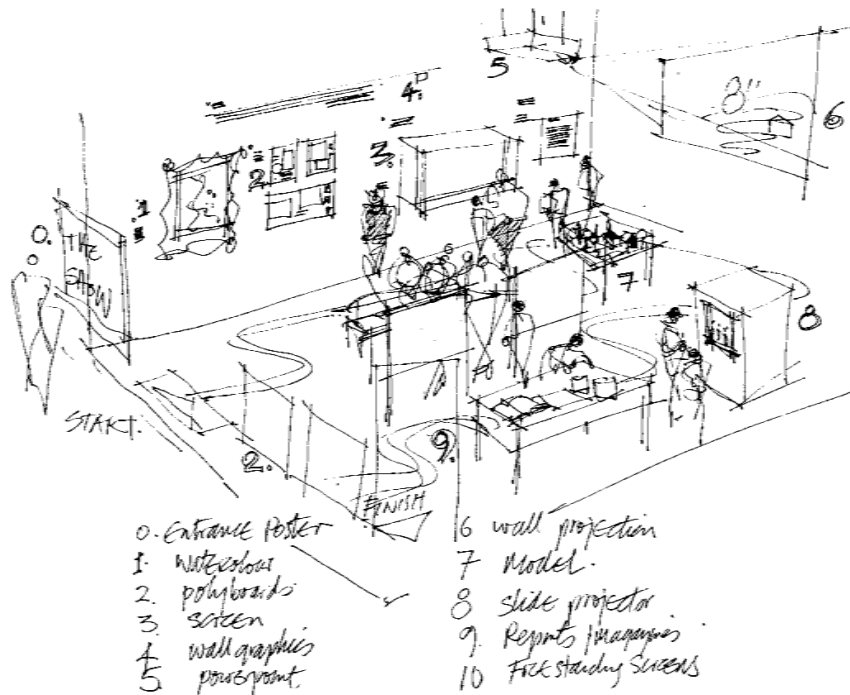 5
4.
8"
6
3.
2.
1
0.
THE
SHOW
7
8
START.
2.
9.
FINISH
0. Entrance Poster
1. watercolour
2. polyboards
3. screen
4 wall graphics
5. powerpoint.
6 wall projection
7 Model.
8 slide projector
9. Reports / magazines
10 Free standing Screens